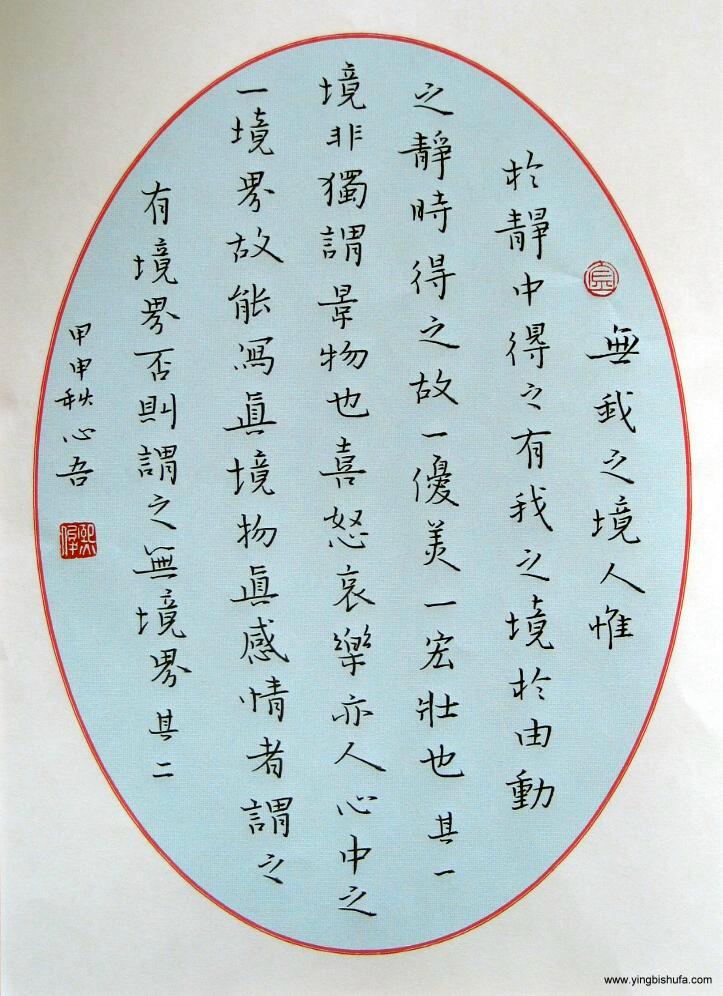 無我之境人惟
於靜中得之有我之境於由動
之靜時得之故一優美一宏壯也 其一
境非獨謂景物也喜怒哀樂亦人心中之
一境界故能寫眞境物眞感情者謂之
有境界否則謂之無境界 其二
甲申秋心吾
www.yingbishufa.com